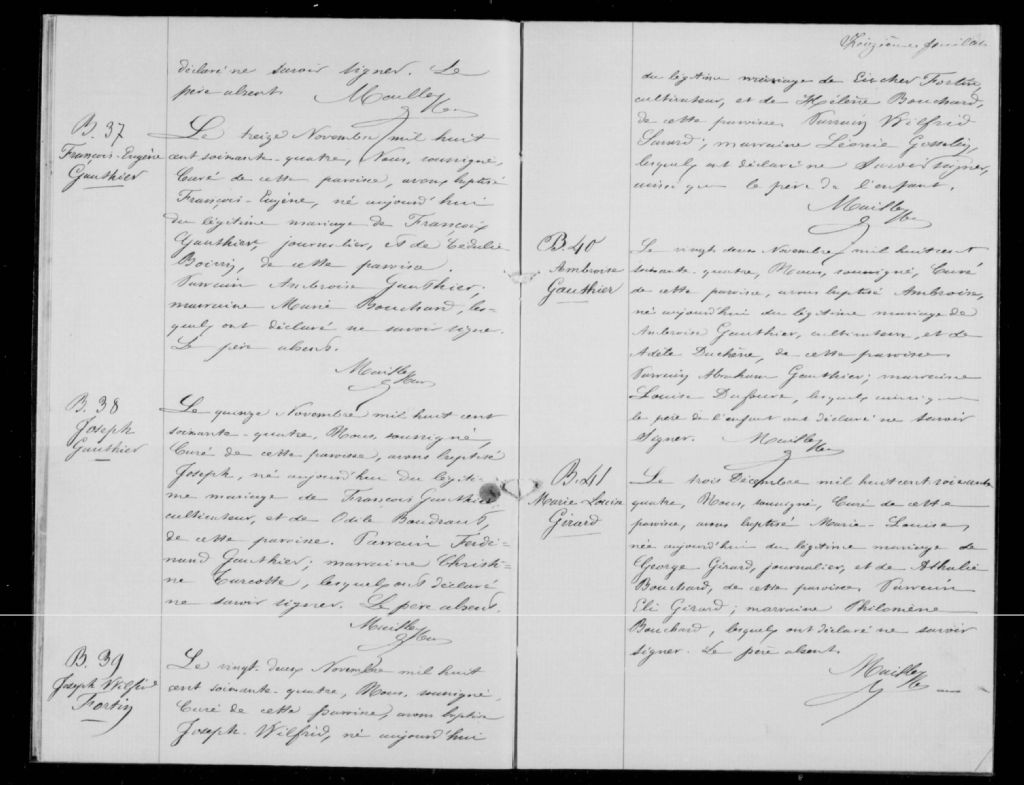 déclaré ne savoir signer. Le
père absent.
B. 37
François-Eugène
Gauthier
Le treize Novembre mil huit
cent soixante-quatre, Nous, soussigné,
Curé de cette paroisse, avons baptisé
François-Eugène, né aujourd'hui
du légitime mariage de François
Gauthier, journalier, et de Cédulie
de cette paroisse.
Parrain Ambroise Gauthier;
marraine Marie Bouchard, les-
quels ont déclaré ne savoir signer.
Le père absent.
B. 38
Joseph
Gauthier
Le quinze Novembre mil huit cent
soixante-quatre, Nous, soussigné,
Curé de cette paroisse, avons baptisé
Joseph, né aujourd'hui du légiti-
me mariage de François Gauthier
cultivateur, et de Odile Boudraut,
de cette paroisse. Parrain Ferdi-
nand Gauthier; marraine Christi-
ne Turcotte, lesquels ont déclaré
ne savoir signer. Le père absent.
B. 39
Joseph Wilfrid
Fortin
Le vingt-deux Novembre mil huit
cent soixante-quatre, Nous, soussigné,
Curé de cette paroisse, avons baptisé
Joseph-Wilfrid, né aujourd'hui
du légitime mariage de Eucher Fortin,
cultivateur, et de Hélène Bouchard,
de cette paroisse. Parrain Wilfrid
Savard; marraine Léonie Gosselin,
lesquels ont déclaré ne savoir signer,
ainsi que le père de l'enfant.
B. 40
Ambroise
Gauthier
Le vingt deux Novembre mil huit cent
soixante-quatre, Nous, soussigné, Curé
de cette paroisse, avons baptisé Ambroise,
né aujourd'hui du légitime mariage de
Ambroise Gauthier, cultivateur, et de
Adèle Duchêne, de cette paroisse.
Parrain Abraham Gauthier; marraine
Louise Dufour, lesquels ainsi que
le père de l'enfant ont déclaré ne savoir
signer.
B. 41
Marie Louise
Girard
Le trois Décembre mil huit cent soixante
quatre, Nous, soussigné, Curé de cette
paroisse, avons baptisé Marie-Louise,
née aujourd'hui du légitime mariage de
George Girard, journalier, et de Athalie
Bouchard, de cette paroisse. Parrain
Eli Girard; marraine Philomène
Bouchard, lesquels ont déclaré ne savoir
signer. Le père absent.